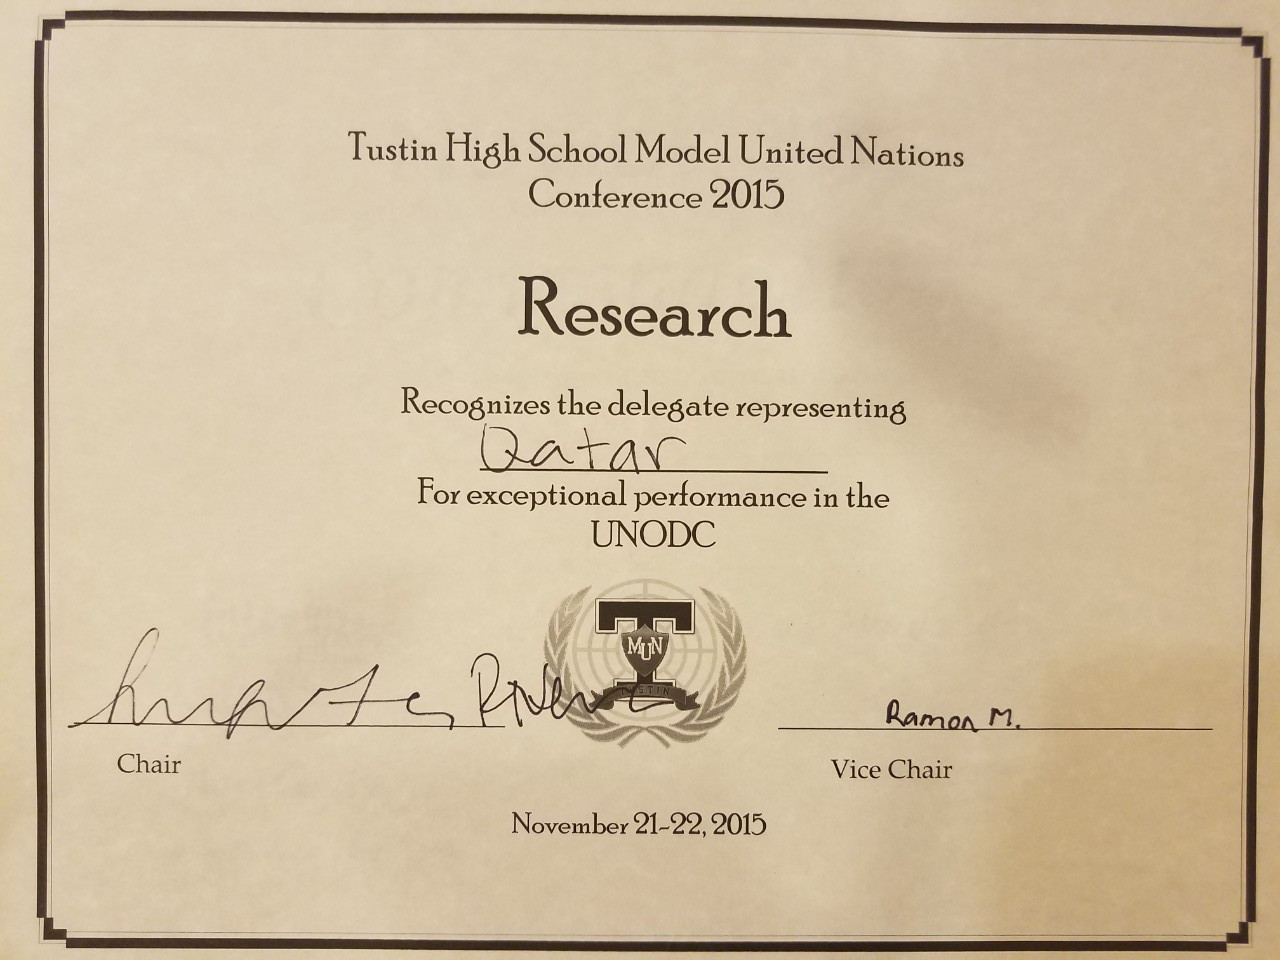 Tustin High School Model United Nations
Conference 2015
Research
Recognizes the delegate representing
Qatar
For exceptional performance in the
UNODC
MUN
TUSTIN
Rivera
Ramon M.
Chair
Vice Chair
November 21-22, 2015